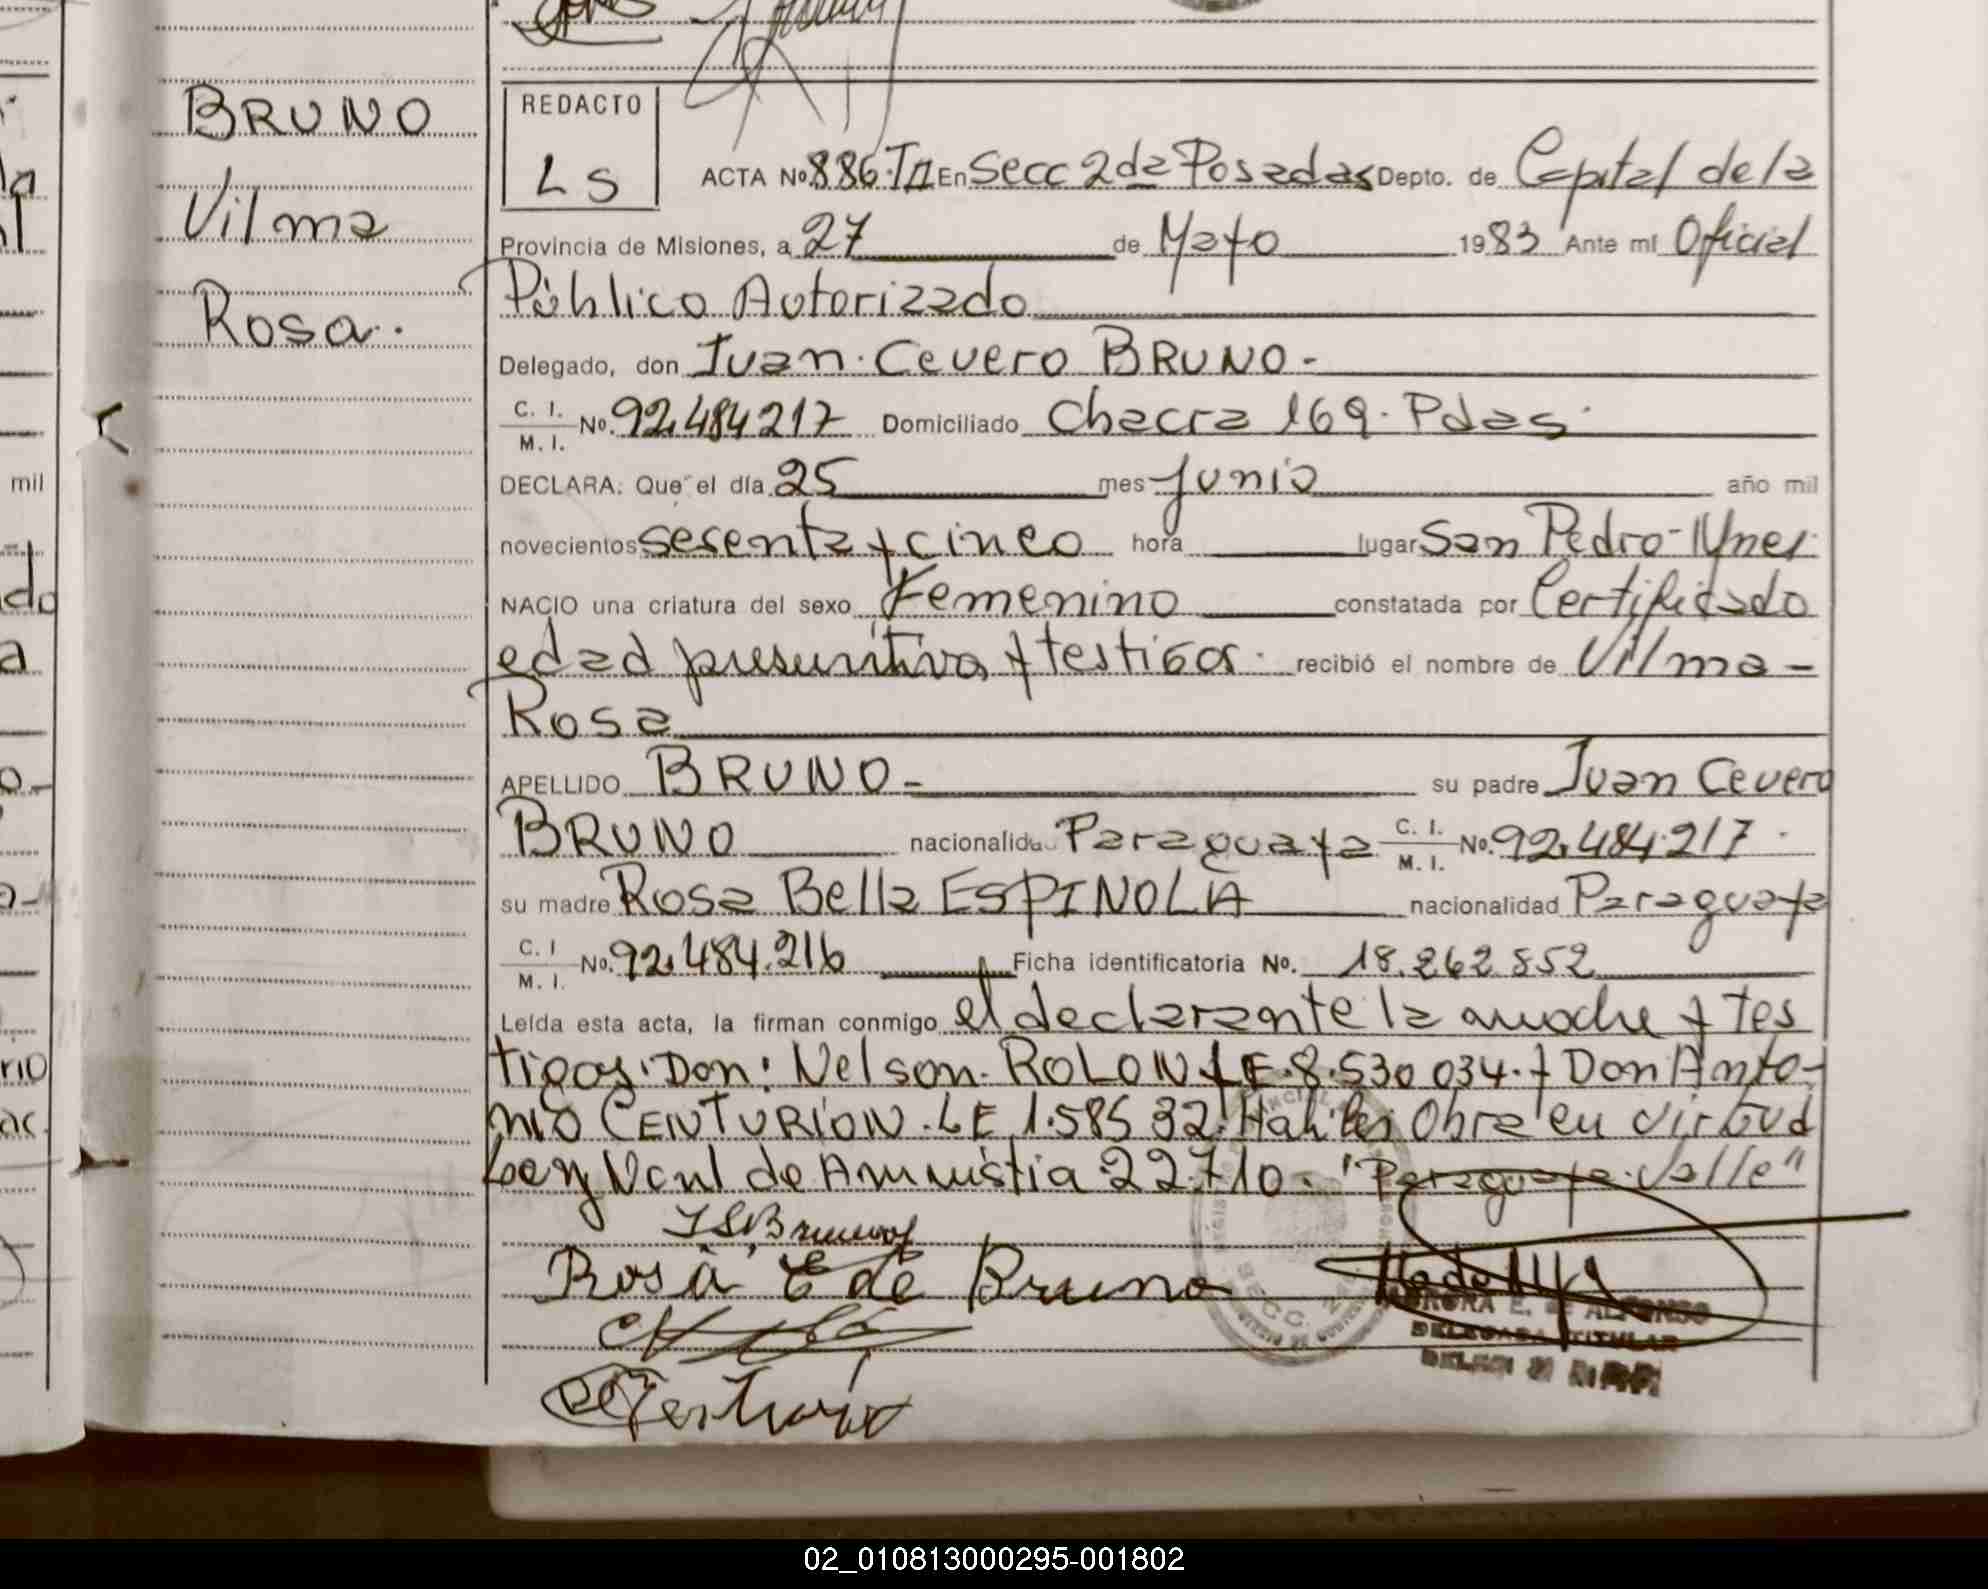 BRUNO
Vilma
Rosa.
REDACTO
LS
ACTA No 886. Tn En Secc 2da Posadas Depto. de Capital de la
Provincia de Misiones, a 27 de Mayo 1983 Ante mí Oficial
Público Autorizado
Delegado, don Juan Cevero BRUNO-
C. I. / M. I. No. 92.484217 Domiciliado Chacra 169. Pdas.
DECLARA: Que el día 25 mes Junio año mil
novecientos sesenta y cinco hora lugar San Pedro-Mnes
NACIO una criatura del sexo Femenino constatada por Certificado
edad presuntiva y testigos. recibió el nombre de Vilma-
Rosa
APELLIDO BRUNO- su padre Juan Cevero
BRUNO nacionalid Paraguaya C. I. / M. I. No. 92.484.217.
su madre Rosa Bella ESPINOLA nacionalidad Paraguaya
C. I / M. I. No. 92.484.216 Ficha identificatoria No. 18.262.852
Leída esta acta, la firman conmigo el declarante la madre y tes
tigos. Don: Nelson. ROLON LE. 8.530 034. y Don Anto-
nio CENTURION. LE 1.585 32. Habiles Obra en Virtud
Ley Ncnl de Amnistia 22.710. "Paraguaya Valle"
Rosa E de Bruno
SECC.
AURORA E. de ALFONSO
DELEGADA TITULAR
mil
do
a
rio
ac.
02_010813000295-001802